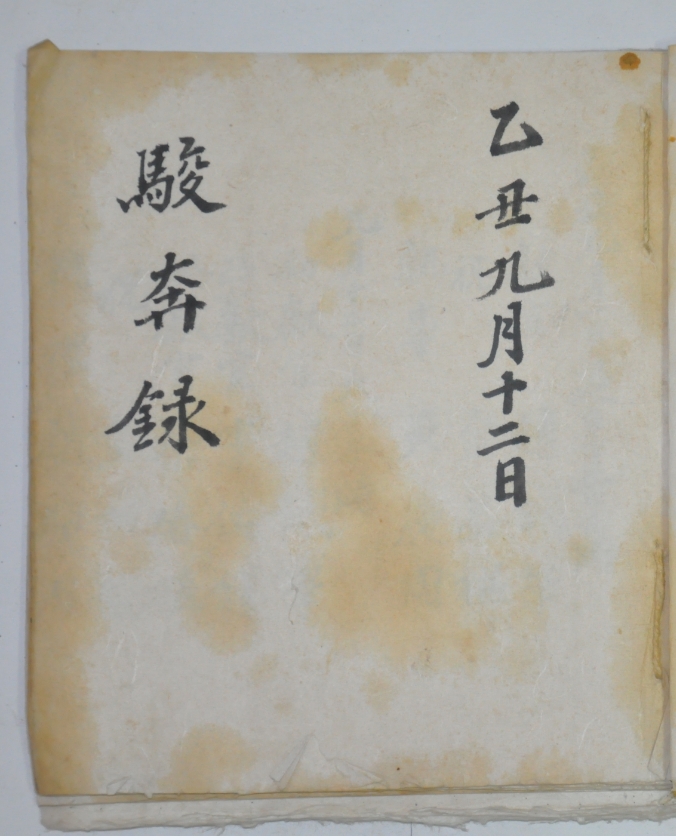 乙丑九月十二日
駿奔録